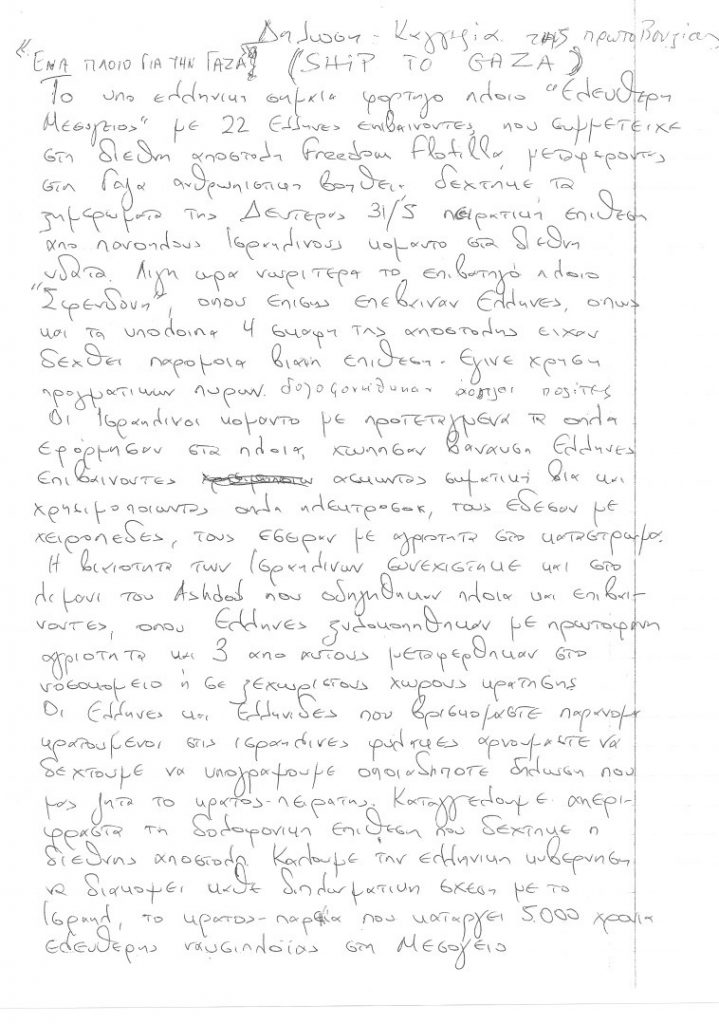 Δηλωση - Καγγελία της πρωτοβουλίας
“ΕΝΑ ΠΛΟΙΟ ΓΙΑ ΤΗΝ ΓΑΖΑ” (SHiP TO GAZA)
Το υπο ελληνικη σημαια φορτηγο πλοιο “Ελευθερη
Μεσογειος” με 22 Ελληνες επιβαινοντες, που συμμετειχε
στη διεθνη αποστολη Freedom Flotilla μεταφεροντας
στη Γαζα ανθρωπιστικη βοηθεια, δεχτηκε τα
ξημερωματα της Δευτερας 31/5 πειρατικη επιθεση
απο πανοπλους Ισραηλινους κομαντο στα διεθνη
υδατα. Λιγη ωρα νωριτερα το επιβατηγό πλοιο
“Σφενδονη”, οπου επισης επεβαιναν Ελληνες, οπως
και τα υπολοιπα 4 σκαφη της αποστολης ειχαν
δεχθει παρομοια βιαιη επιθεση - Εγινε χρηση
πραγματικων πυρων. δολοφονήθηκαν άοπλοι πολίτες
Οι Ισραηλινοι κομαντο με προτεταγμενα τα οπλα
εφορμησαν στα πλοια, χτυπησαν βαναυσα Ελληνες
επιβαινοντες ασκωντας σωματικη βια και
χρησιμοποιωντας οπλα ηλεκτροσοκ, τους εδεσαν με
χειροπεδες, τους εσεραν με αγριοτητα στο καταστρωμα.
Η βιαιοτητα των Ισραηλινων συνεχιστηκε και στο
λιμανι του Ashdod που οδηγηθηκαν πλοια και επιβαι-
νοντες, οπου Ελληνες ξυλοκοπηθηκαν με πρωτοφανη
αγριοτητα και 3 απο αυτους μεταφερθηκαν στο
νοσοκομειο ή σε ξεχωριστους χωρους κρατησης
Οι Ελληνες και Ελληνιδες που βρισκομαστε παρανομα
κρατουμενοι στις ισραηλινες φυλακες αρνουμαστε να
δεχτουμε να υπογραψουμε οποιαδηποτε δηλωση που
μας ζητα το κρατος-πειρατης. Καταγγελουμε απερι-
φραστα τη δολοφονικη επιθεση που δεχτηκε η
διεθνης αποστολη. Καλουμε την ελληνικη κυβερνηση
να διακοψει καθε διπλωματικη σχεση με το
Ισραηλ, το κρατος-παρία που καταργει 5.000 χρονια
ελευθερης ναυσιπλοΐας στη Μεσογειο